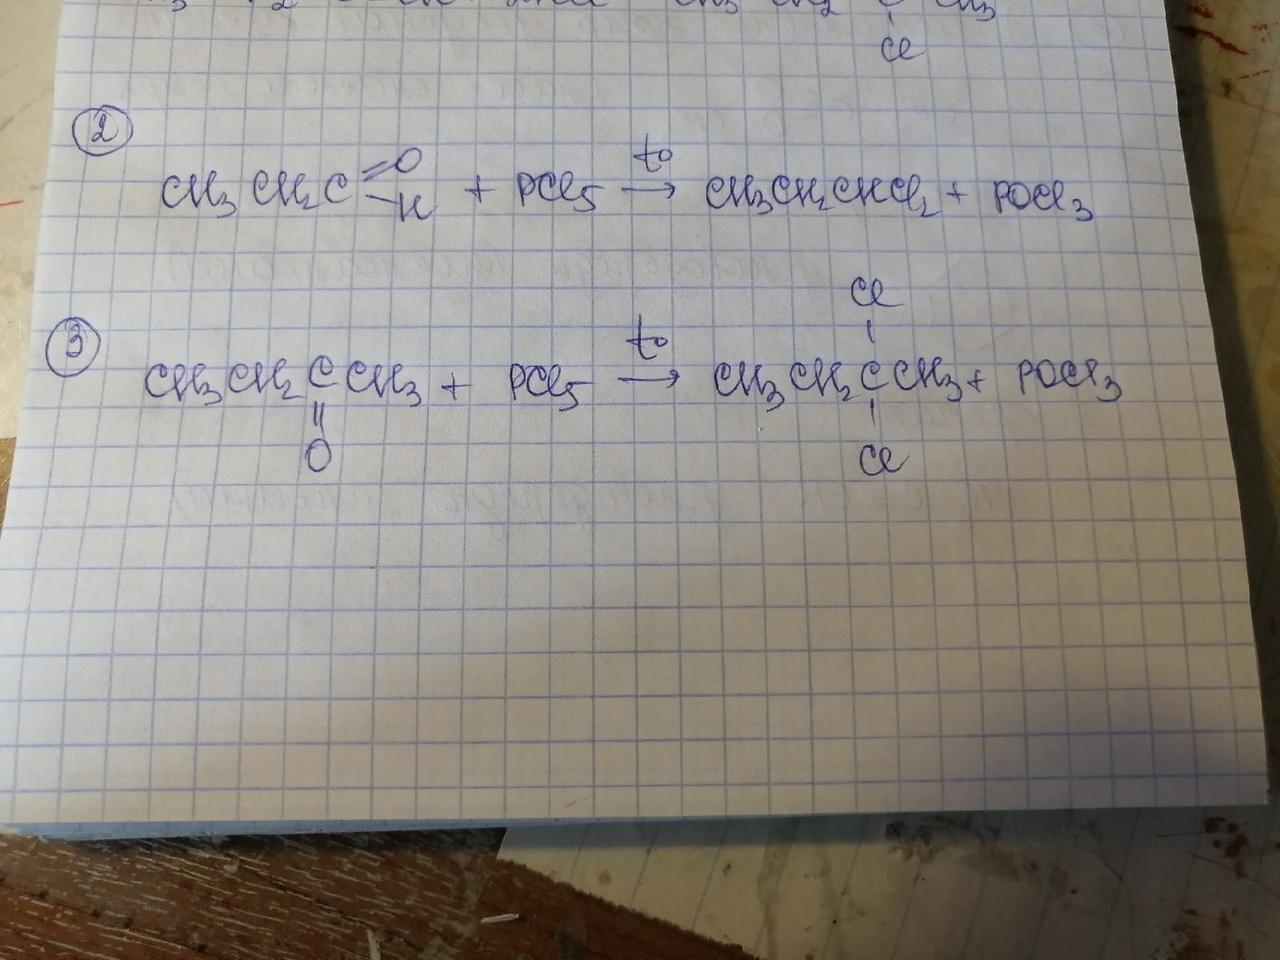 Cl
②
CH3 CH2 C =O -H + PCl5 t° → CH3CH2CHCl2 + POCl3
③
CH3CH2 C CH3 + PCl5 t° → CH3CH2 C CH3 + POCl3
Cl
||
O
Cl